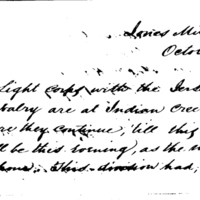 Jones Mi
Octo
Light Corps with the Ins
valry are at Indian Cree
are they continue, till this
ll be this evening, as the w
This division had,